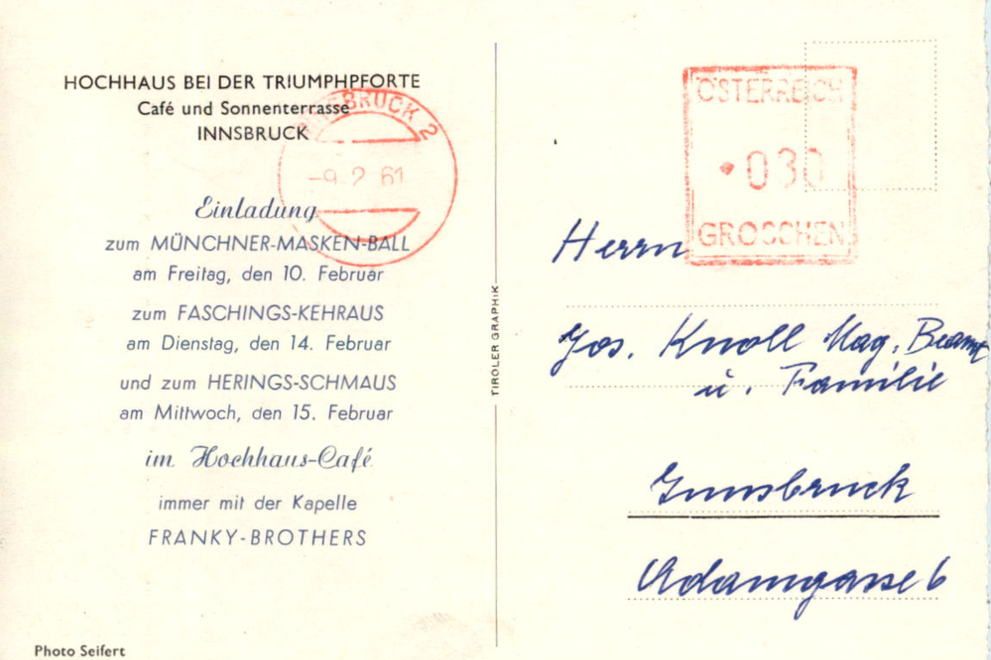 HOCHHAUS BEI DER TRIUMPHPFORTE
Café und Sonnenterrasse
INNSBRUCK
INNSBRUCK 2
-9. 2. 61
Einladung
zum MÜNCHNER-MASKEN-BALL
am Freitag, den 10. Februar
zum FASCHINGS-KEHRAUS
am Dienstag, den 14. Februar
und zum HERINGS-SCHMAUS
am Mittwoch, den 15. Februar
im Hochhaus-Café
immer mit der Kapelle
FRANKY-BROTHERS
Photo Seifert
TIROLER GRAPHIK
ÖSTERREICH
030
GROSCHEN
Herrn
Jos. Knoll Mag. Beamt
u. Familie
Innsbruck
Adamgasse 6